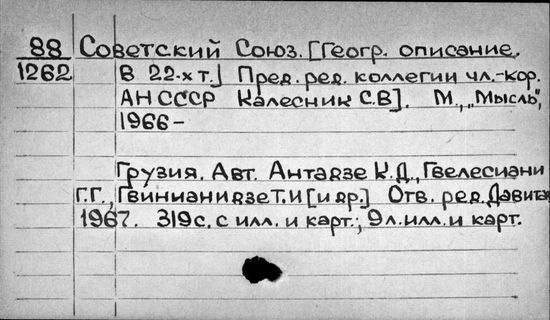 88 Советский Союз. [Геогр. описание.
1262 В 22-х т.] Пред. ред. коллегии чл.-кор.
АН СССР Калесник С.В]. М., „Мысль",
1966-
Грузия. Авт. Антадзе К.Д., Гвелесиани
Г.Г., Гвинианидзе Т.И [и др.] Отв. ред. Давита
1967. 319 с. с илл. и карт.; 9 л. илл. и карт.